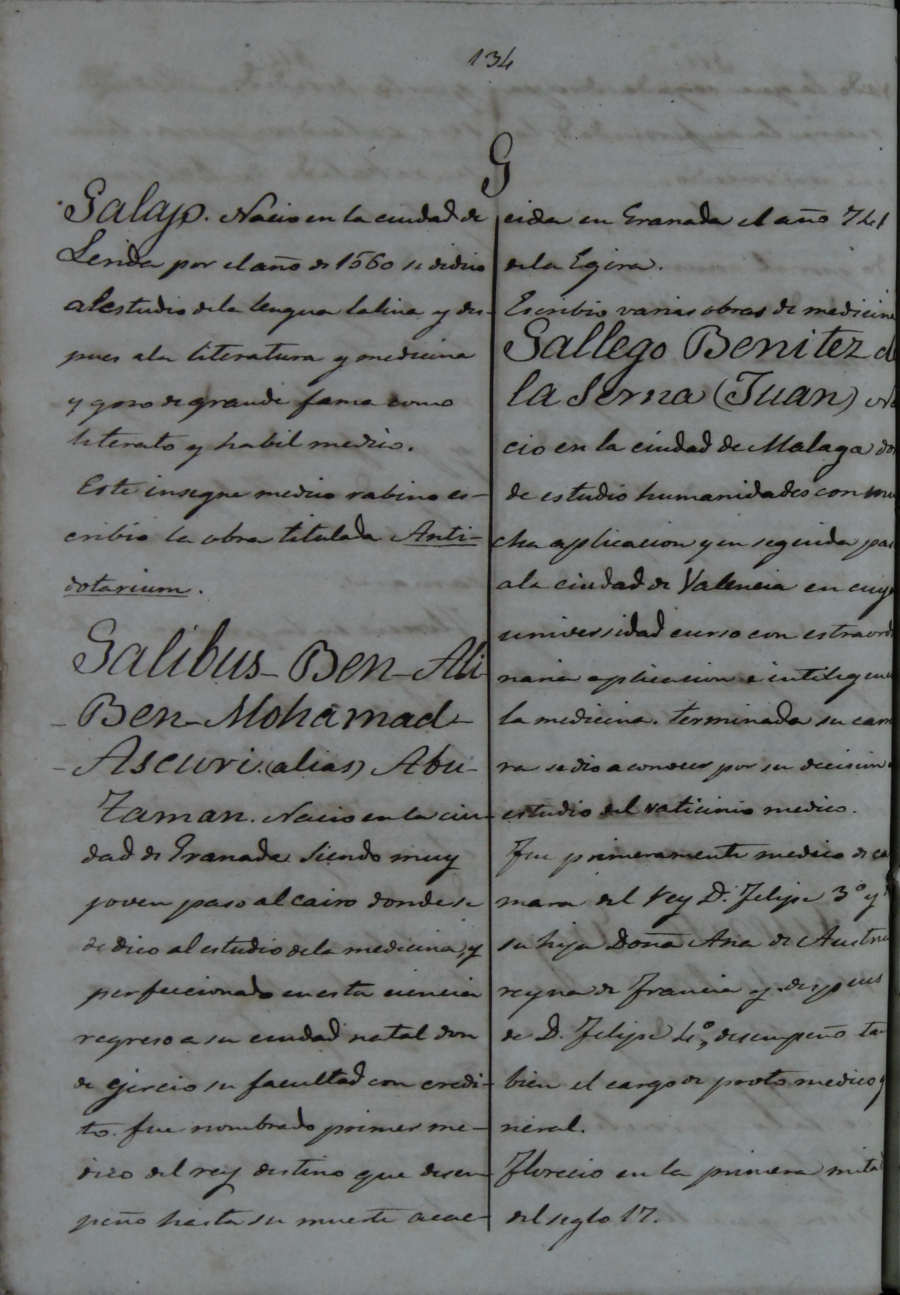 134
G
Galap. Nacio en la ciudad de
Lerida por el año de 1560 se dedico
al estudio de la lengua latina y des-
pues a la literatura y medicina
y gozo de grande fama como
literato y habil medico.
Este insigne medico rabino es-
cribio la obra titulada Anti-
dotarium.
Galibus-Ben-Ali
-Ben-Mohamad-
-Ascuri.(alias) Abu-
Zaman. Nacio en la ciu-
dad de Granada. Siendo muy
joven paso al cairo donde se
dedico al estudio de la medicina, y
perfeccionado en esta ciencia
regreso a su ciudad natal don
de ejercio su facultad con credi-
to. fue nombrado primer me-
dico del rey destino que desem
peño hasta su muerte acae-
cida en Granada el año 741
de la Egira.
Escribio varias obras de medicina
Gallego Benitez de
la Serna (Juan) Na
cio en la ciudad de Malaga don
de estudio humanidades con mu
cha aplicacion y en seguida paso
a la ciudad de Valencia en cuya
universidad curso con estraordi
naria aplicacion e inteligencia
la medicina. terminada su carre
ra se dio a conocer por su decision
estudio del vaticinio medico.
Fue primeramente medico de ca
mara del Rey D. Felipe 3º y
su hija Doña Ana de Austria
reyna de Francia y despues
de D. Felipe 4º, desempeño tam
bien el cargo de proto medico ge
neral.
Florecio en la primera mitad
del siglo 17.